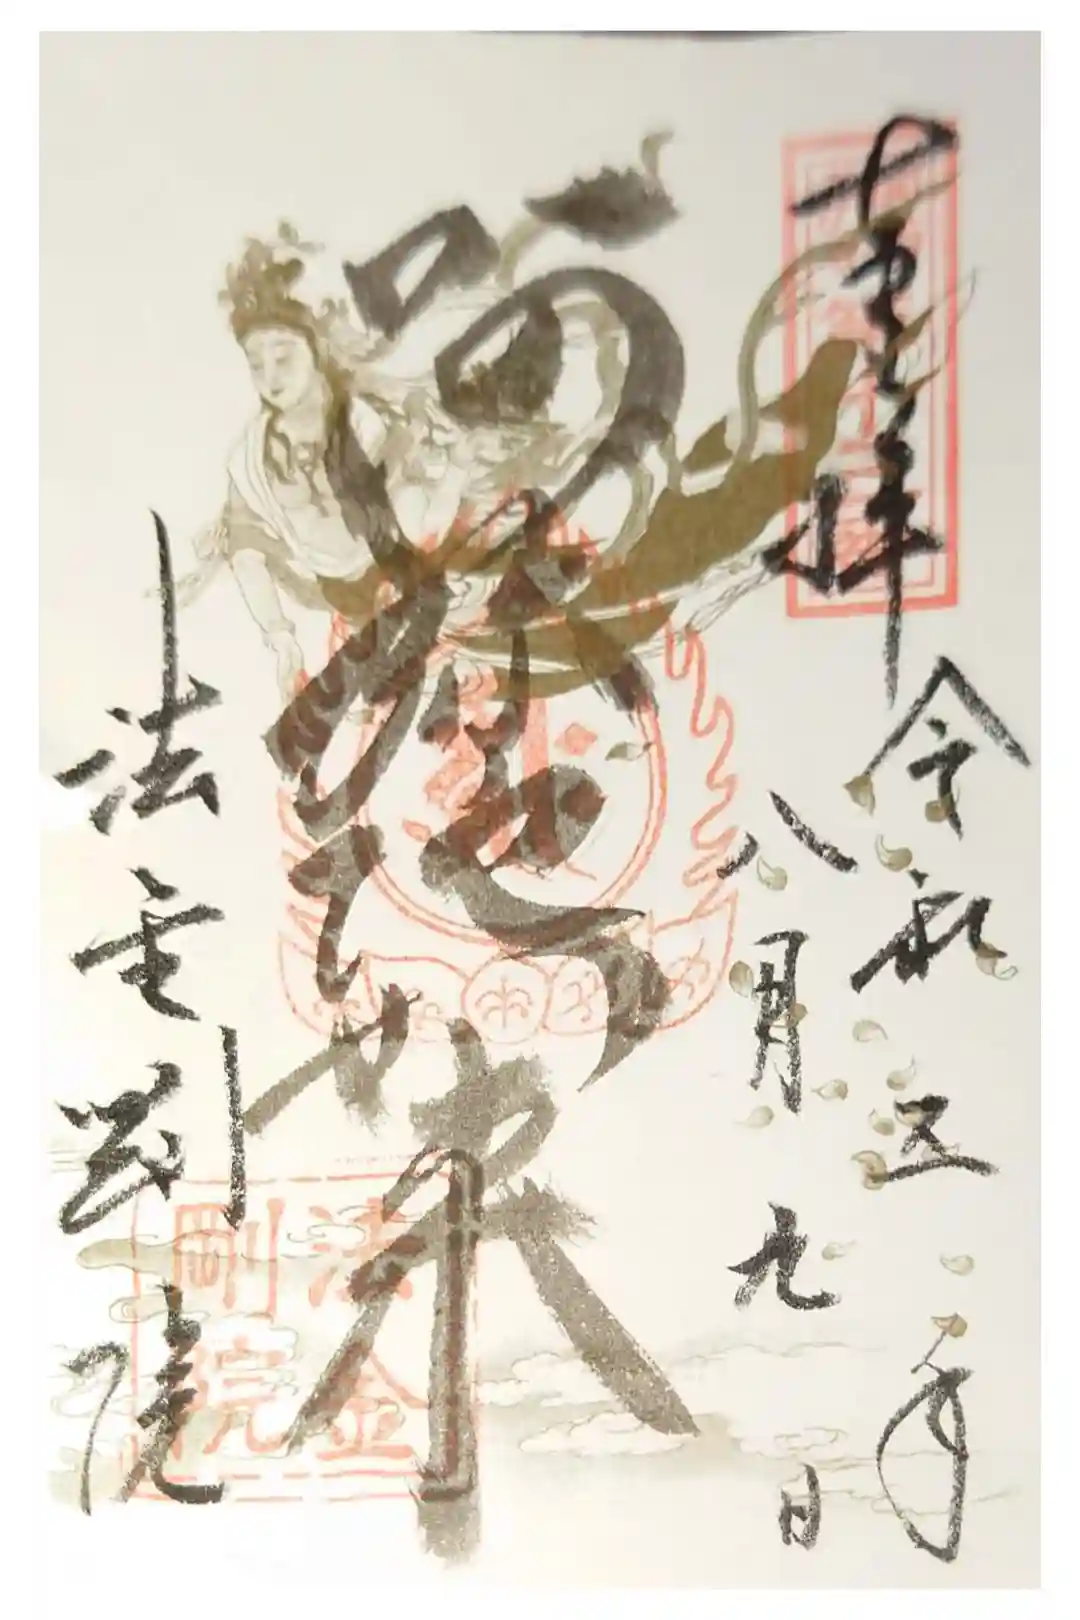 奉拝
令和五年
八月九日
阿弥陀如来
法金剛院
法金
剛院